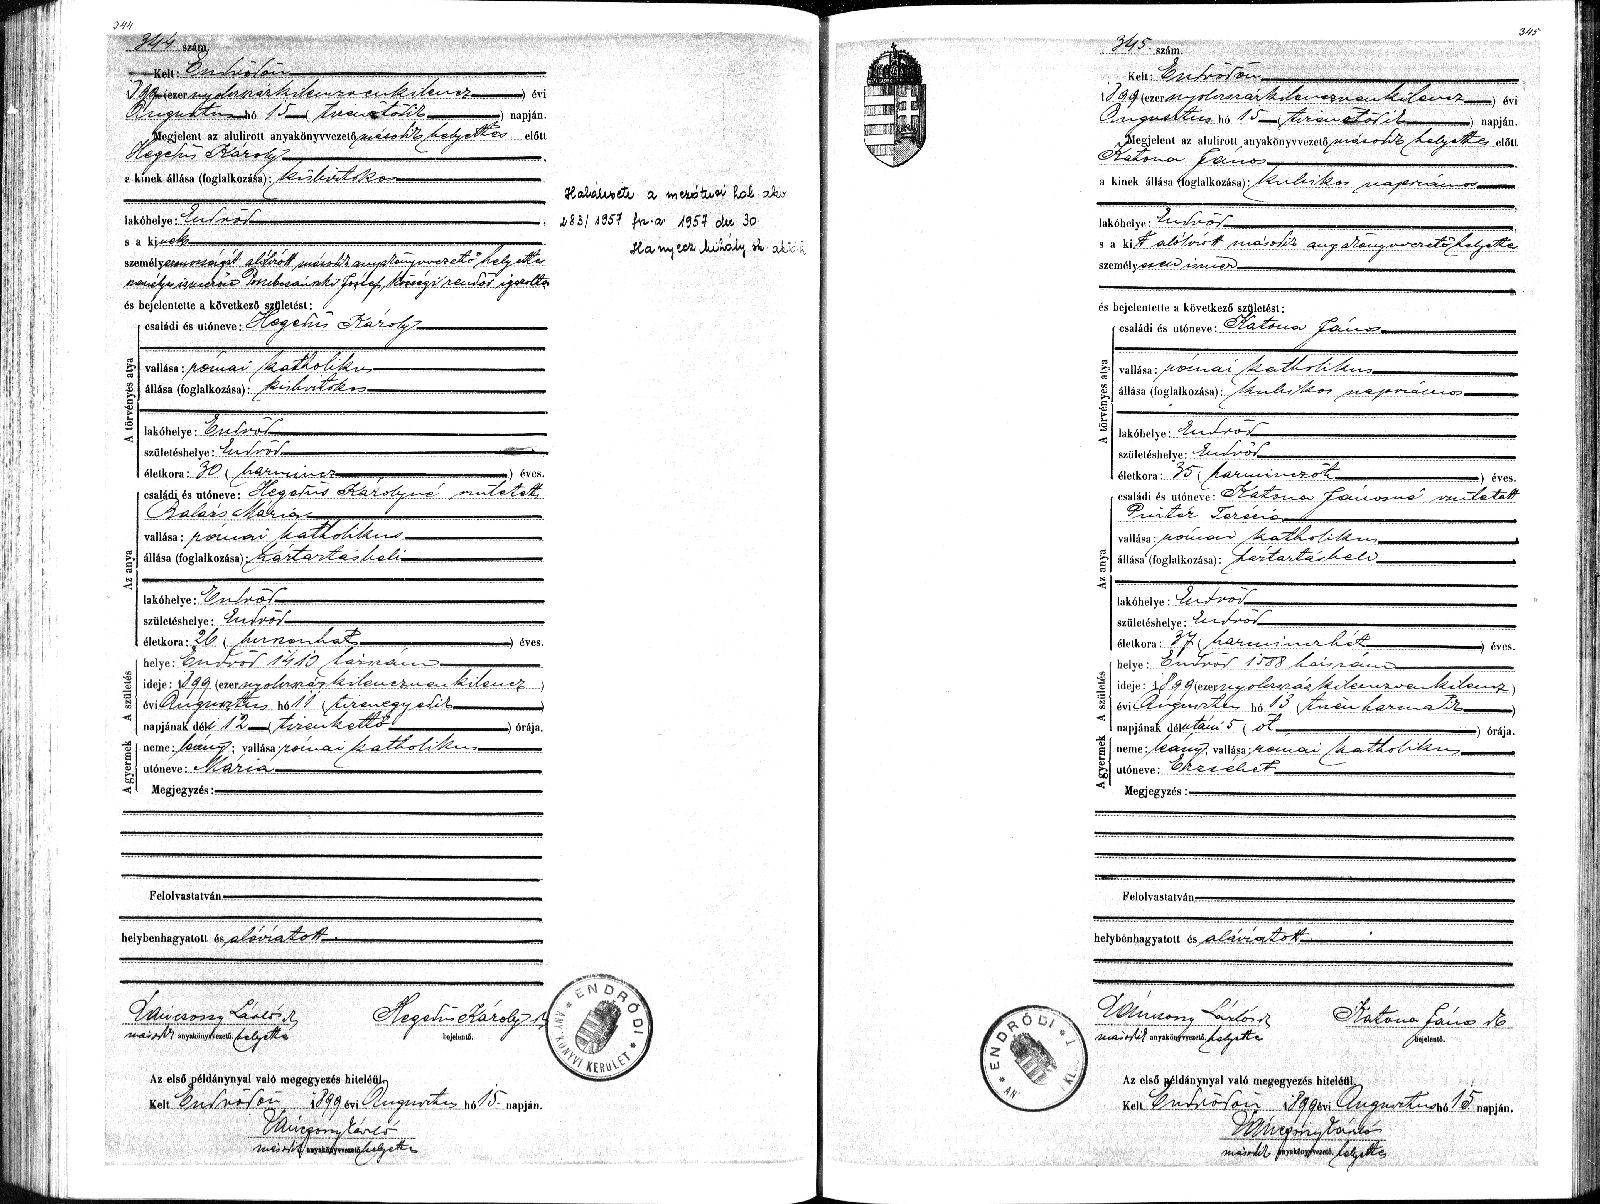 344
344 szám.
Kelt: Endrődön
1899 (ezer nyolczszázkilenczvenkilencz) évi
Augusztus hó 15 (tizenötödik) napján.
Megjelent az alulirott anyakönyvvezető második helyettes előtt
Hegedüs Károly
a kinek állása (foglalkozása): kisbirtokos
lakóhelye: Endrőd
s a kinek
személyazonosságát alólirott második anyakönyvvezető helyettes
József, községi rendőr igazolta
és bejelentette a következő születést:
A törvényes atya
családi és utóneve: Hegedüs Károly
vallása: római katholikus
állása (foglalkozása): kisbirtokos
lakóhelye: Endrőd
születéshelye: Endrőd
életkora: 30 (harmincz) éves.
Az anya
családi és utóneve: Hegedüs Károlyné született
Balázs Mária
vallása: római katholikus
állása (foglalkozása): háztartásbeli
lakóhelye: Endrőd
születéshelye: Endrőd
életkora: 26 (huszonhat) éves.
A születés
helye: Endrőd 1410 házszám
ideje: 1899 (ezer nyolczszázkilenczvenkilencz)
évi Augusztus hó 11 (tizenegyedik)
napjának déli 12 (tizenkettő) órája.
A gyermek
neme: leány; vallása: római katholikus
utóneve: Mária
Megjegyzés:
Felolvastatván
helybenhagyatott és aláiratott.
László sk
második anyakönyvvezető helyettes
Hegedüs Károly sk
bejelentő.
Az első példánynyal való megegyezés hiteléül.
Kelt Endrődön 1899 évi Augusztus hó 15 napján.
László
második anyakönyvvezető helyettes
ENDRŐDI * ANYAKÖNYVI KERÜLET *
Halálesete a mezőtúri hal. akv
283/1957 fsz.a 1957 dec 30.
Hanyecz Mihály sk. akvh
345
345 szám.
Kelt: Endrődön
1899 (ezer nyolczszázkilenczvenkilencz) évi
Augusztus hó 15 (tizenötödik) napján.
Megjelent az alulirott anyakönyvvezető második helyettes előtt
Katona János
a kinek állása (foglalkozása): kubikos napszámos
lakóhelye: Endrőd
s a kit alólirott második anyakönyvvezető helyettes
személyesen ismer
és bejelentette a következő születést:
A törvényes atya
családi és utóneve: Katona János
vallása: római katholikus
állása (foglalkozása): kubikos napszámos
lakóhelye: Endrőd
születéshelye: Endrőd
életkora: 35 (harminczöt) éves.
Az anya
családi és utóneve: Katona Jánosné született
Pintér Terézia
vallása: római katholikus
állása (foglalkozása): háztartásbeli
lakóhelye: Endrőd
születéshelye: Endrőd
életkora: 37 (harminczhét) éves.
A születés
helye: Endrőd 1588 házszám
ideje: 1899 (ezer nyolczszázkilenczvenkilencz)
évi Augusztus hó 13 (tizenharmadik)
napjának délutáni 5 (öt) órája.
A gyermek
neme: leány; vallása: római katholikus
utóneve: Erzsébet
Megjegyzés:
Felolvastatván
helybenhagyatott és aláiratott
László sk
második anyakönyvvezető helyettes
Katona János sk
bejelentő.
Az első példánynyal való megegyezés hiteléül.
Kelt Endrődön 1899 évi Augusztus hó 15 napján.
László
második anyakönyvvezető helyettes
ENDRŐDI *